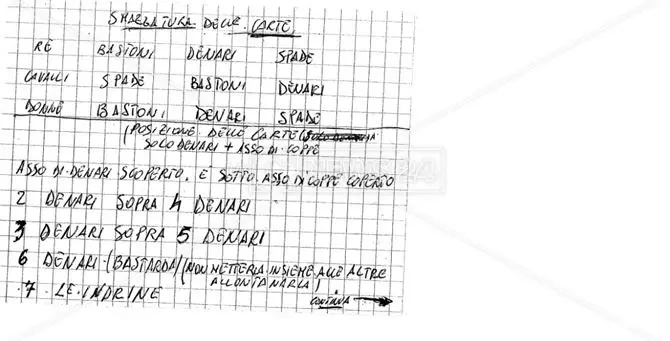 SMAZZATURA DELLE CARTE
RE BASTONI DENARI SPADE
CAVALLI SPADE BASTONI DENARI
DONNE BASTONI DENARI SPADE
(POSIZIONE DELLE CARTE
SOLO DENARI + ASSO DI COPPE
ASSO DI DENARI SCOPERTO. E SOTTO ASSO DI COPPE COPERTO
2 DENARI SOPRA 4 DENARI
3 DENARI SOPRA 5 DENARI
6 DENARI (BASTARDA) (NON METTERLA INSIEME ALLE ALTRE
ALLONTANARLA)
7 LE INDRINE
CONTINUA